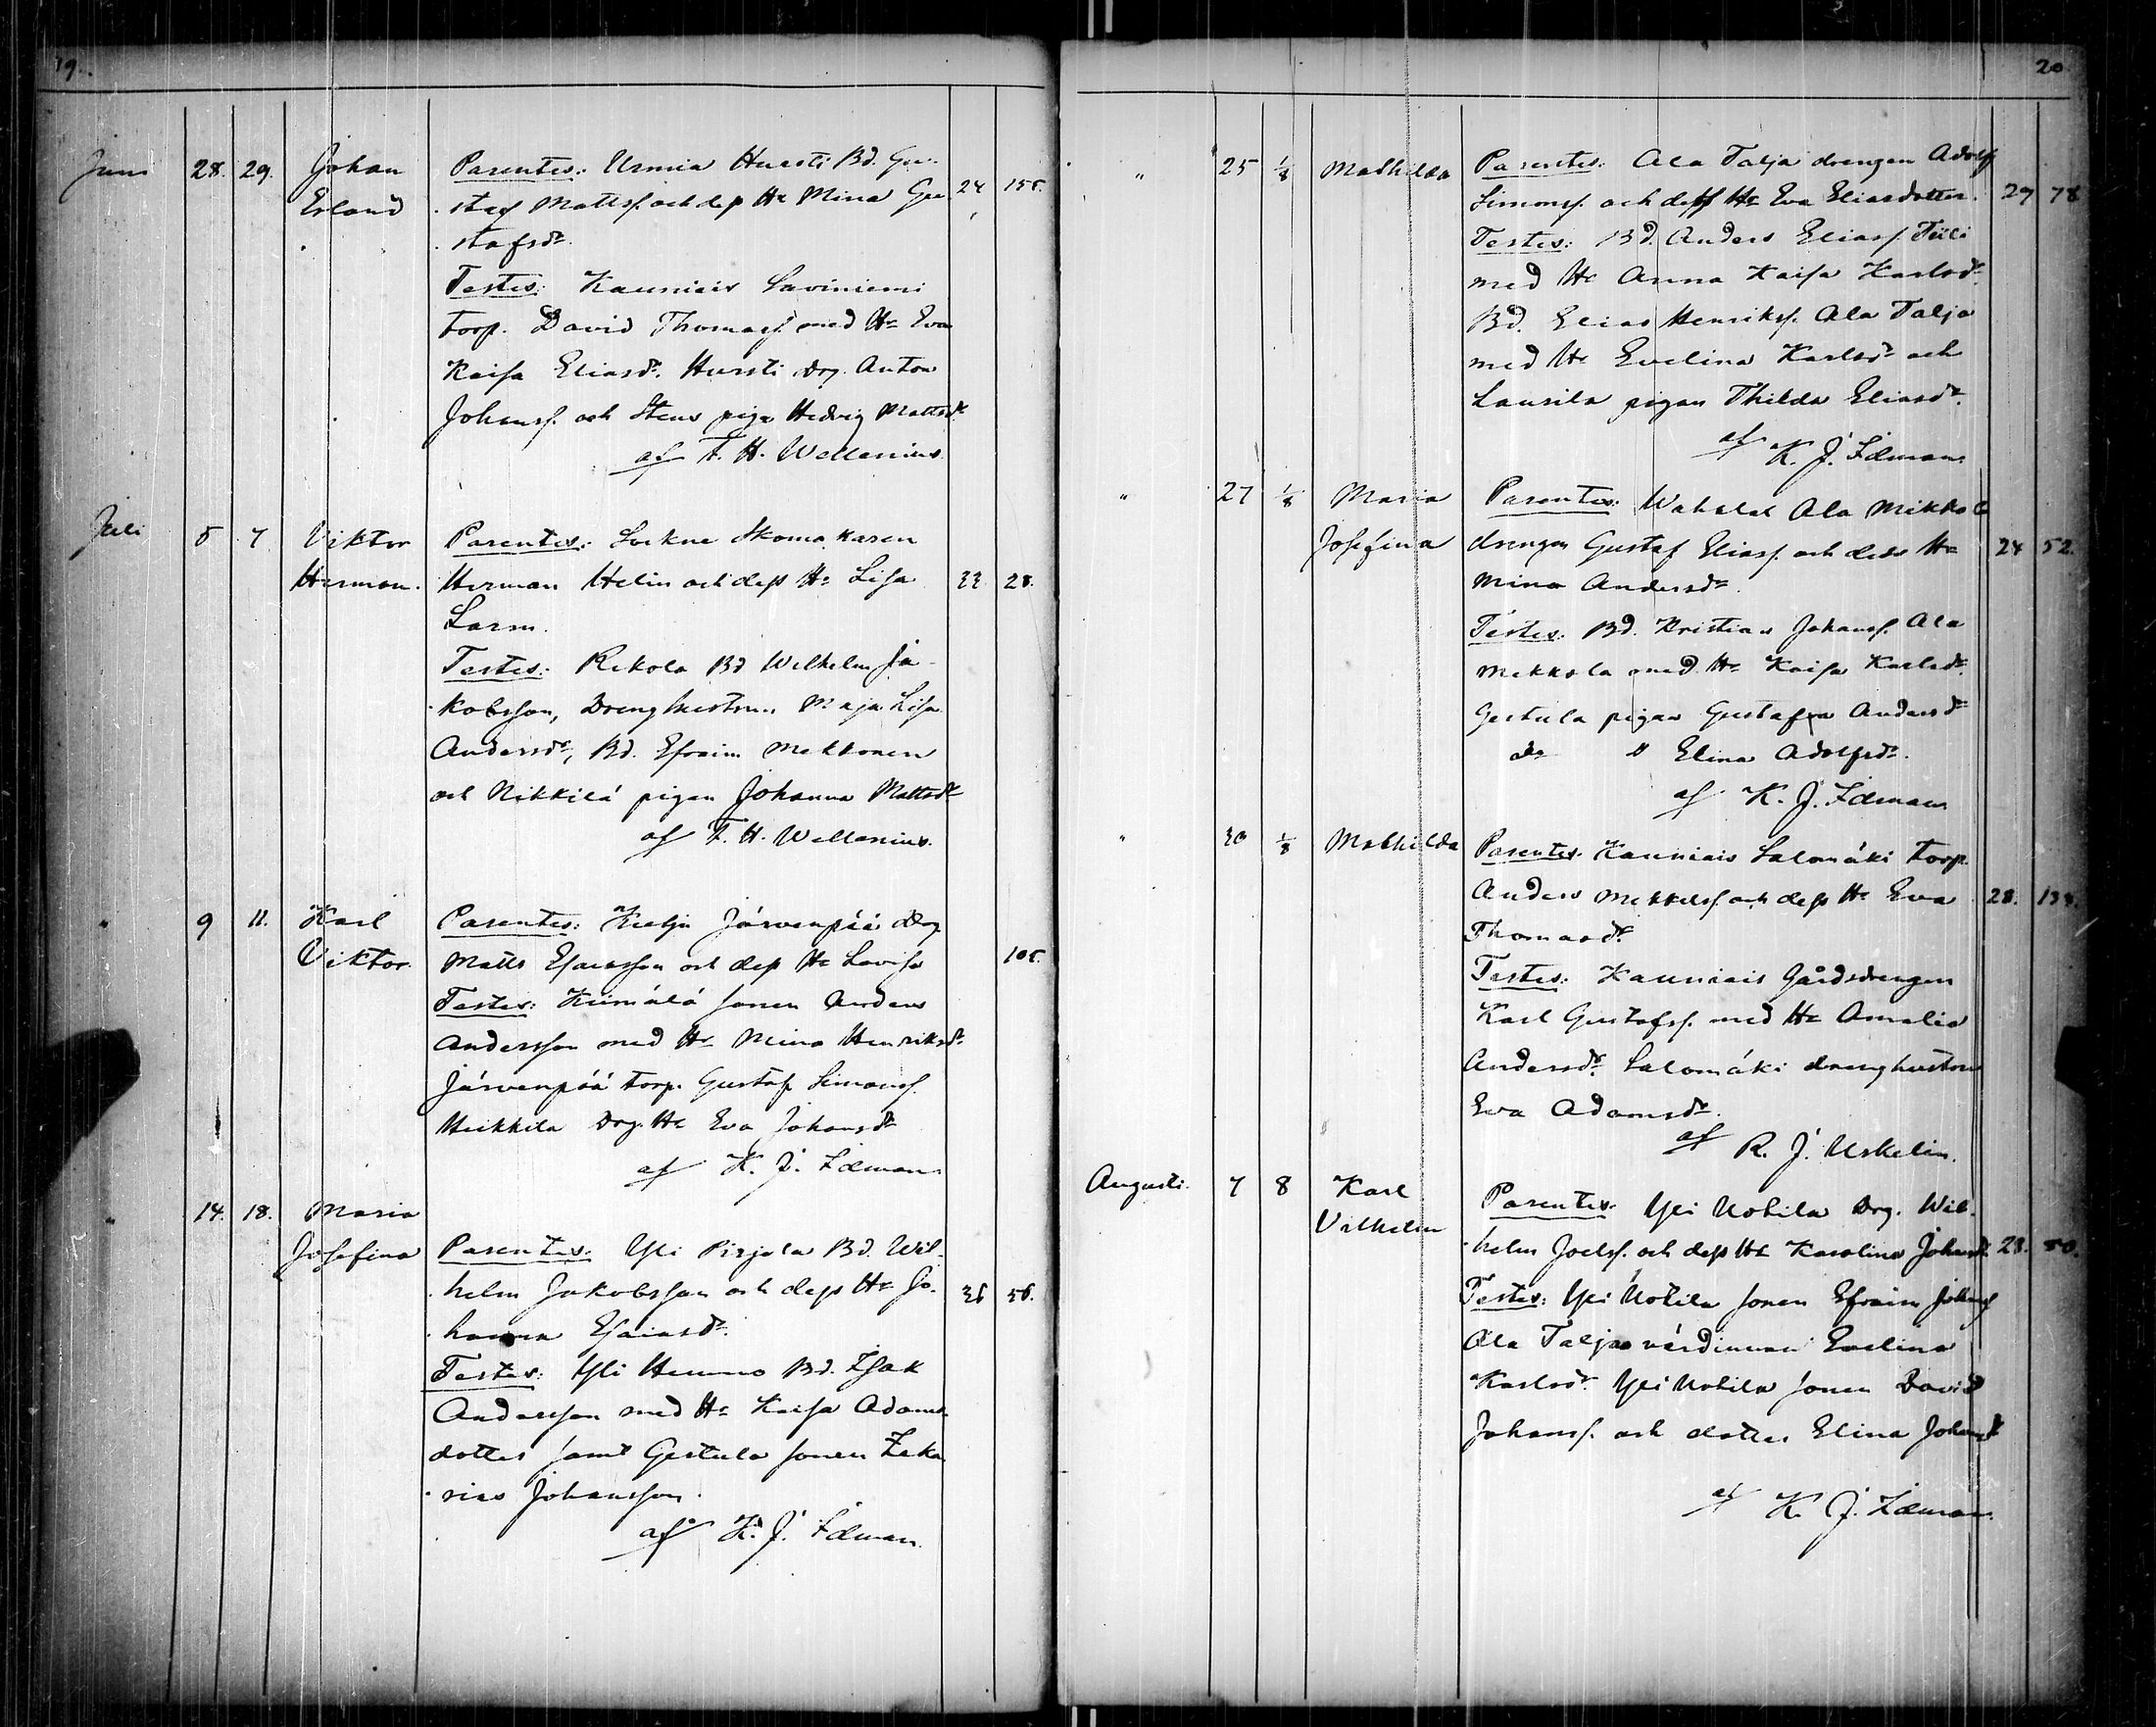 19.
Juni 28. 29. Johan Parentes: Urmia Hursti Bd. Gu-
Erland staf Mattss. och dess Hu Mina Gu- 24 155.
stafsdr.
Testes: Kauniais Laviniemi
torp. David Thomass. med Hu Eva
Kaisa Eliasdr. Hursti Drg. Anton
Johanss. och Stens piga Hedvig Mattsdr.
af F. H. Wellenius.
Juli 5 7. Viktor Parentes: Sockne Skomakaren
Herman. Herman Helin och dess Hu Lisa 33 28.
Larm.
Testes: Rekola Bd Wilhelm Ja-
kobsson, Drenghustrun Maja Lisa
Andersdr, Bd. Efraim Mekkonen
och Nikkilä pigan Johanna Mattsdr
af F. H. Wellenius.
" 9 11. Karl Parentes: Järvenpää Drg
Viktor. Matts Esaiasson och dess Hu Lovisa 105.
Testes: sonen Anders
Andersson med Hu Mina Henriksdr.
Järvenpää torp. Gustaf Simonss.
Heikkila Drg. Hu Eva Johansdr
af K. J. Idman.
" 14. 18. Maria
Josefina Parentes: Yli Pirjola Bd. Wil-
helm Jakobsson och dess Hu Jo- 36 56.
hanna Esaiasdr.
Testes: Yli Hemmo Bd. Isak
Andersson med Hu Kaisa Adams-
dotter samt Gestula sonen Zeka-
rias Johansson.
af K. J. Idman.
20
" 25 1/8 Mathilda Parentes: Ala Talja drengen Adolf
Simonss. och dess Hu Eva Eliasdotter. 27 78
Testes: Bd. Anders Eliass.
med Hu Anna Kaisa Karlsdr.
Bd. Elias Henrikss. Ala Talja
med Hu Evelina Karlsdr och
Laurila pigan Thilda Eliasdr.
af K. J. Idman.
" 27 1/8 Maria Parentes: Ala Mikkola
Josefina drengen Gustaf Eliass. och dess Hu 24 52.
Mina Andersdr.
Testes: Bd. Kristian Johanss. Ala
Mikkola med Hu Kaisa Karlsdr.
Gestula pigan Gustafva Andersdr
do " Elina Adolfsdr.
af K. J. Idman
" 30 1/8 Mathilda Parentes. Kauniais Salomäki torp.
Anders Mikkelss. och dess Hu Eva 28.
Thomasdr.
Testes: Kauniais Gårdsdrengen
Karl Gustafss. med Hu Amalia
Andersdr. Salomäki drenghustrun
Eva Adamsdr.
af R. J. Uskelin.
Augusti. 7 8 Karl Parentes. Yli Uotila Drg. Wil-
Vilhelm helm Joelss. och dess Hu Karolina Johansdr. 28. 50.
Testes: Yli Uotila sonen Efraim Johanss
Ala Talja värdinnan Evelina
Karlsdr. Yli Uotila sonen David
Johanss. och dotter Elina Johansdr
af K. J. Idman.